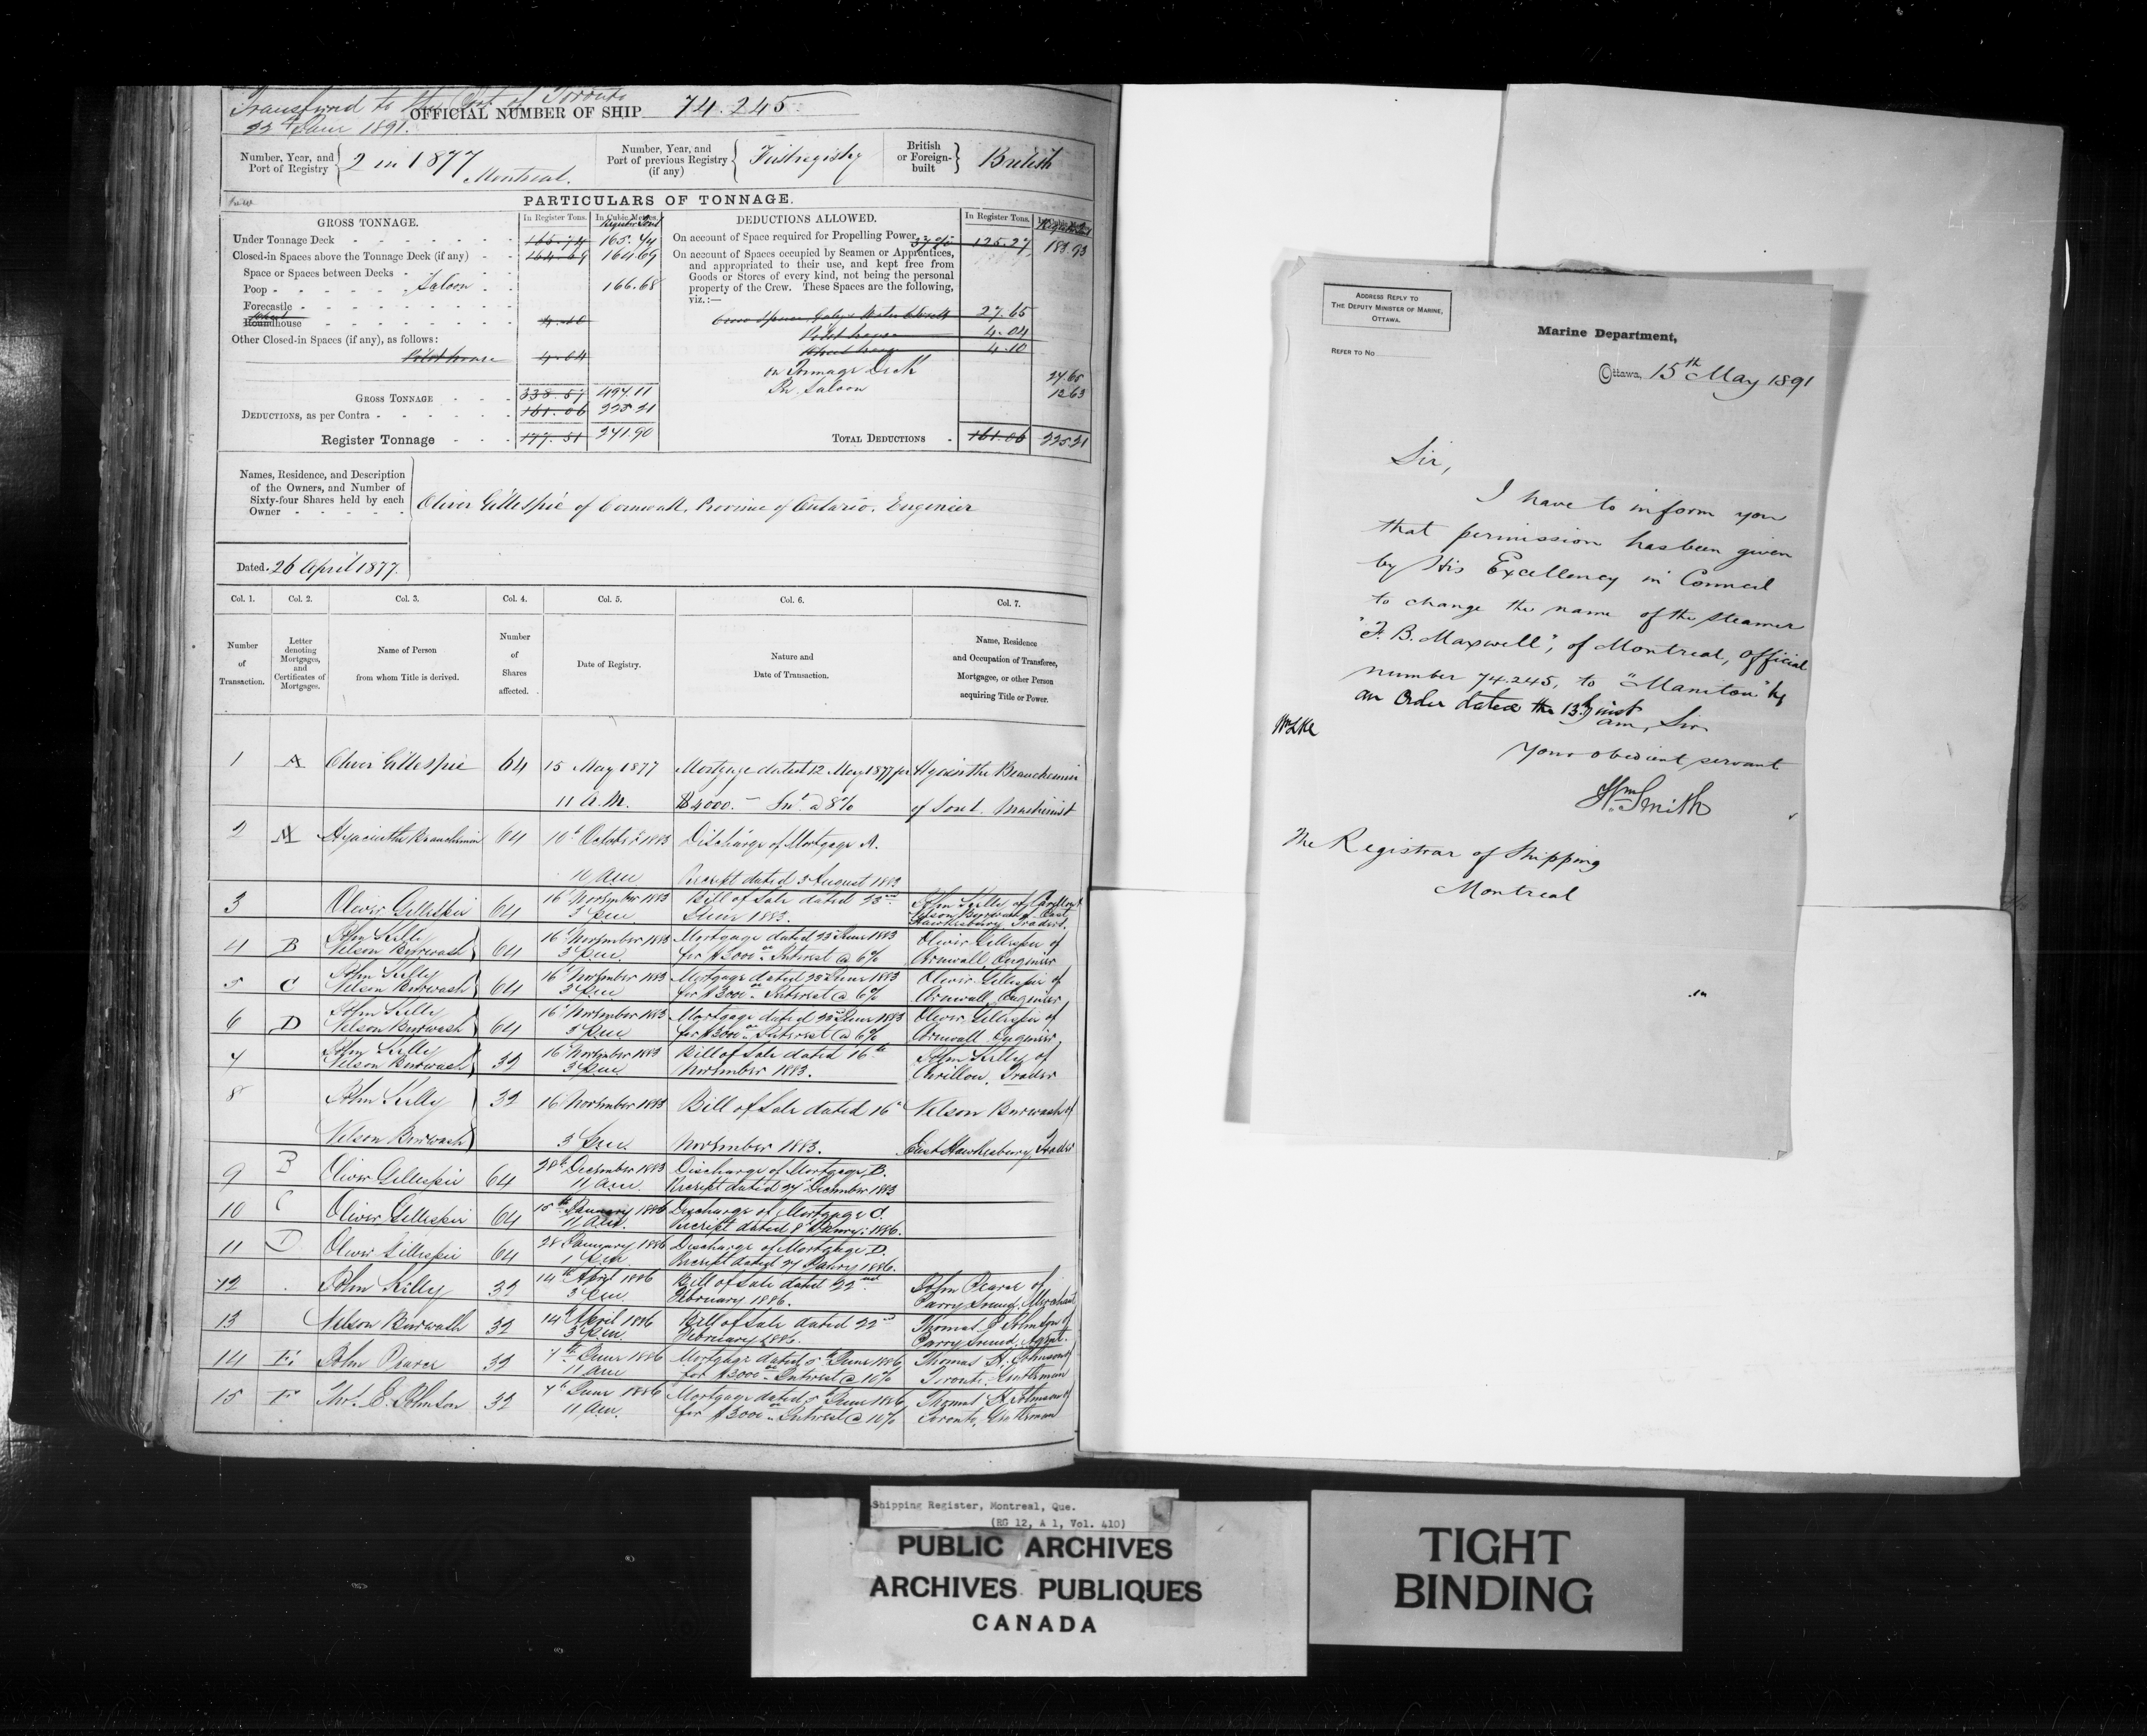 Transferred to the Port of Toronto
22nd June 1891.
OFFICIAL NUMBER OF SHIP 74.245
Number, Year, and Port of Registry { 2 in 1877 Montreal.
Number, Year, and Port of previous Registry (if any) { First registry
British or Foreign-built } British
PARTICULARS OF TONNAGE.
GROSS TONNAGE. In Register Tons. In Cubic Metres. Register Tons
Under Tonnage Deck 165.74 165.74
Closed-in Spaces above the Tonnage Deck (if any) 164.69 164.69
Space or Spaces between Decks
Poop Saloon 166.68
Forecastle
Roundhouse Wheel 4.10
Other Closed-in Spaces (if any), as follows:
Pilot house 4.04
GROSS TONNAGE 338.57 497.11
DEDUCTIONS, as per Contra 161.06 225.21
Register Tonnage 177.51 271.90
DEDUCTIONS ALLOWED. In Register Tons.
On account of Space required for Propelling Power 37% 125.27 183.93
On account of Spaces occupied by Seamen or Apprentices,
and appropriated to their use, and kept free from
Goods or Stores of every kind, not being the personal
property of the Crew. These Spaces are the following,
viz.:—
Crew Space, Galley & Water Closets 27.65
Pilot house 4.04
Wheel house 4.10
on Tonnage Deck 27.65
In Saloon 13.63
TOTAL DEDUCTIONS 161.06 225.21
Names, Residence, and Description
of the Owners, and Number of
Sixty-four Shares held by each
Owner
Oliver Gillespie of Cornwall, Province of Ontario. Engineer
Dated 26 April 1877.
Col. 1. Col. 2. Col. 3. Col. 4. Col. 5. Col. 6. Col. 7.
Number of Transaction.
Letter denoting Mortgages, and Certificates of Mortgages.
Name of Person from whom Title is derived.
Number of Shares affected.
Date of Registry.
Nature and Date of Transaction.
Name, Residence and Occupation of Transferee, Mortgagee, or other Person acquiring Title or Power.
1 A Oliver Gillespie 64 15 May 1877 Mortgage dated 12 May 1877 for Hyacinthe Beauchemin
11 A.M. $4000.— Int. @ 8% of Sorel. Machinist
2 A Hyacinthe Beauchemin 64 10th October 1883 Discharge of Mortgage A.
11 am Receipt dated 3 August 1883
3 Oliver Gillespie 64 16 November 1883 Bill of Sale dated 23rd John Kelly of Carillon &
3 p.m. June 1883. Nelson Burwash of East
Hawkesbury Traders.
4 B John Kelly 64 16 November 1883 Mortgage dated 23 June 1883 Oliver Gillespie of
Nelson Burwash 3 p.m. for $3000 00 Interest @ 6% Cornwall, Engineer
5 C John Kelly 64 16 November 1883 Mortgage dated 23 June 1883 Oliver Gillespie of
Nelson Burwash 3 p.m. for $3000 00 Interest @ 6% Cornwall, Engineer
6 D John Kelly 64 16 November 1883 Mortgage dated 23 June 1883 Oliver Gillespie of
Nelson Burwash 3 p.m. for $3000 00 Interest @ 6% Cornwall Engineer,
7 John Kelly 32 16 November 1883 Bill of Sale dated 16th John Kelly of
Nelson Burwash 3 p.m. November 1883. Carillon, Trader
8 John Kelly 32 16 November 1883 Bill of Sale dated 16th Nelson Burwash of
Nelson Burwash 3 p.m. November 1883. East Hawkesbury, Trader
9 B Oliver Gillespie 64 28th December 1883 Discharge of Mortgage B.
11 a.m. Receipt dated 27 December 1883
10 C Oliver Gillespie 64 15th January 1886 Discharge of Mortgage C.
11 a.m. Receipt dated 8 Janry: 1886.
11 D Oliver Gillespie 64 28 January 1886 Discharge of Mortgage D.
1 p.m. Receipt dated 27 Janry 1886.
12 John Kelly 32 14th April 1886 Bill of Sale dated 22nd John Pearce of
3 p.m. February 1886. Parry Sound, Merchant
13 Nelson Burwash 32 14 April 1886 Bill of Sale dated 22nd Thomas E Johnson of
3 p.m. February 1886. Parry Sound, Agent.
14 E. John Pearce 32 7th June 1886 Mortgage dated 5th June 1886 Thomas H. Johnson of
11 am for $3000 00 Interest @ 10% Toronto, Gentleman
15 F Thos. E. Johnson 32 7th June 1886 Mortgage dated 5 June 1886 Thomas H Johnson of
11 am. for $3000 00 Interest @ 10% Toronto, Gentleman
ADDRESS REPLY TO
THE DEPUTY MINISTER OF MARINE,
OTTAWA.
REFER TO NO
Marine Department,
Ottawa, 15th May 1891
Sir,
I have to inform you
that permission has been given
by His Excellency in Council
to change the name of the steamer
"F. B. Maxwell", of Montreal, Official
number 74.245, to "Manitou" by
an Order dated the 13th inst
I am, Sir,
Your obedient servant
Wm Smith
The Registrar of Shipping
Montreal
Shipping Register, Montreal, Que.
(RG 12, A 1, Vol. 410)
PUBLIC ARCHIVES
ARCHIVES PUBLIQUES
CANADA
TIGHT
BINDING